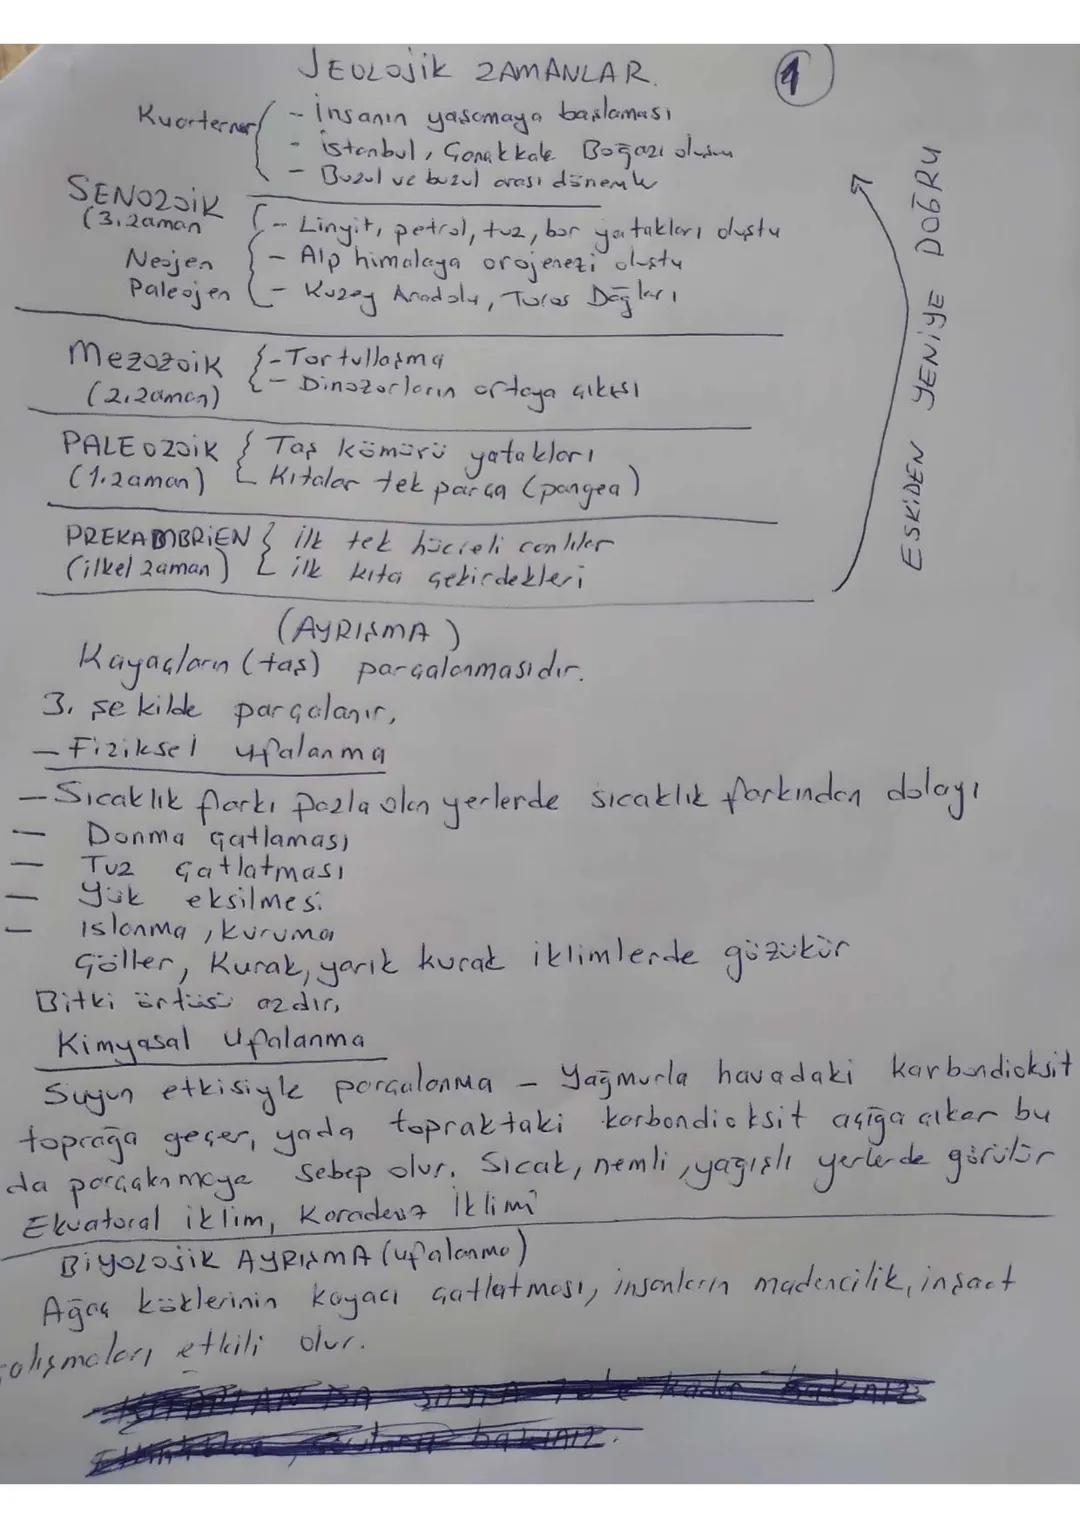 JEOLOJİK ZAMANLAR.
1
Kuarterner
- İnsanın yaşamaya başlaması
- istanbul, Çanakkale Boğazı oluşumu
- Buzul ve buzul arası dönemle
SENOZOİK
(3.zaman
Neojen
Paleojen
- Linyit, petrol, tuz, bor yatakları oluştu
- Alp himalaya orojenezi oluştu
- Kuzey Anadolu, Toros Dağları
Mezozoik
(2.zaman)
- Tortullaşma
- Dinozorların ortaya çıkışı
PALEOZOİK
(1.zaman)
Taş kömürü yatakları
Kıtalar tek parça (pangea)
PREKAMBRİEN
(ilkel zaman)
ilk tek hücreli canlılar
ilk kıta çekirdekleri
ESKİDEN YENİYE DOĞRU
(AYRIŞMA)
Kayaçların (taş) parçalanmasıdır.
3. şekilde parçalanır,
- Fiziksel ufalanma
- Sıcaklık farkı fazla olan yerlerde sıcaklık farkından dolayı
- Donma çatlaması
- Tuz çatlatması
- Yük eksilmesi
- ıslanma, kuruma
Çöller, Kurak, yarık kurak iklimlerde gözükür
Bitki örtüsü azdır,
Kimyasal Ufalanma
Suyun etkisiyle parçalanma - Yağmurla havadaki karbondioksit
toprağa geçer, yada topraktaki karbondioksit açığa çıkar bu
da parçalanmaya sebep olur. Sıcak, nemli, yağışlı yerlerde görülür
Ekvatoral iklim, Karadeniz İklimi
BİYOLOJİK AYRIŞMA (ufalanma)
Ağaç köklerinin kayacı çatlatması, insanların madencilik, inşaat
çalışmaları etkili olur.